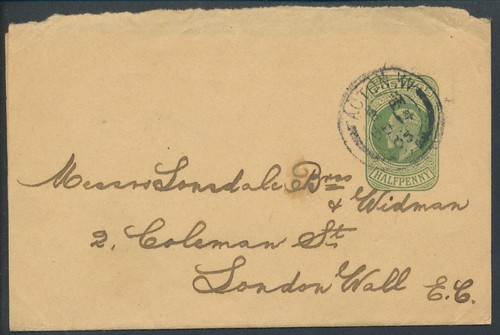 ACTON. W
HALFPENNY
Messrs Lonsdale Bros
& Widman
2, Coleman St.
London Wall E.C.